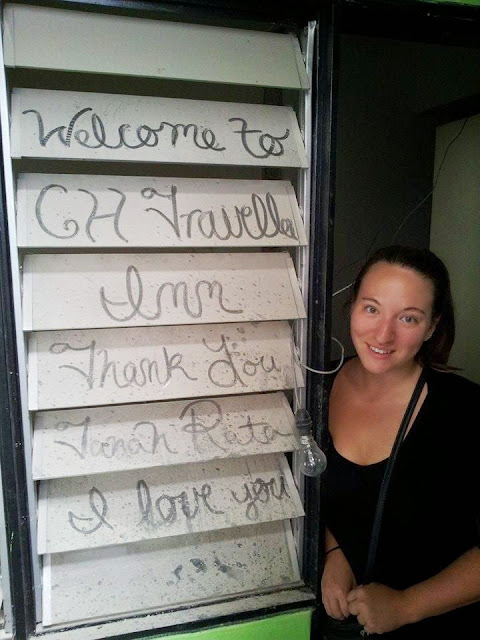 Welcome to
CH Traveller
Inn
Thank You
Tanah Rata
I love you